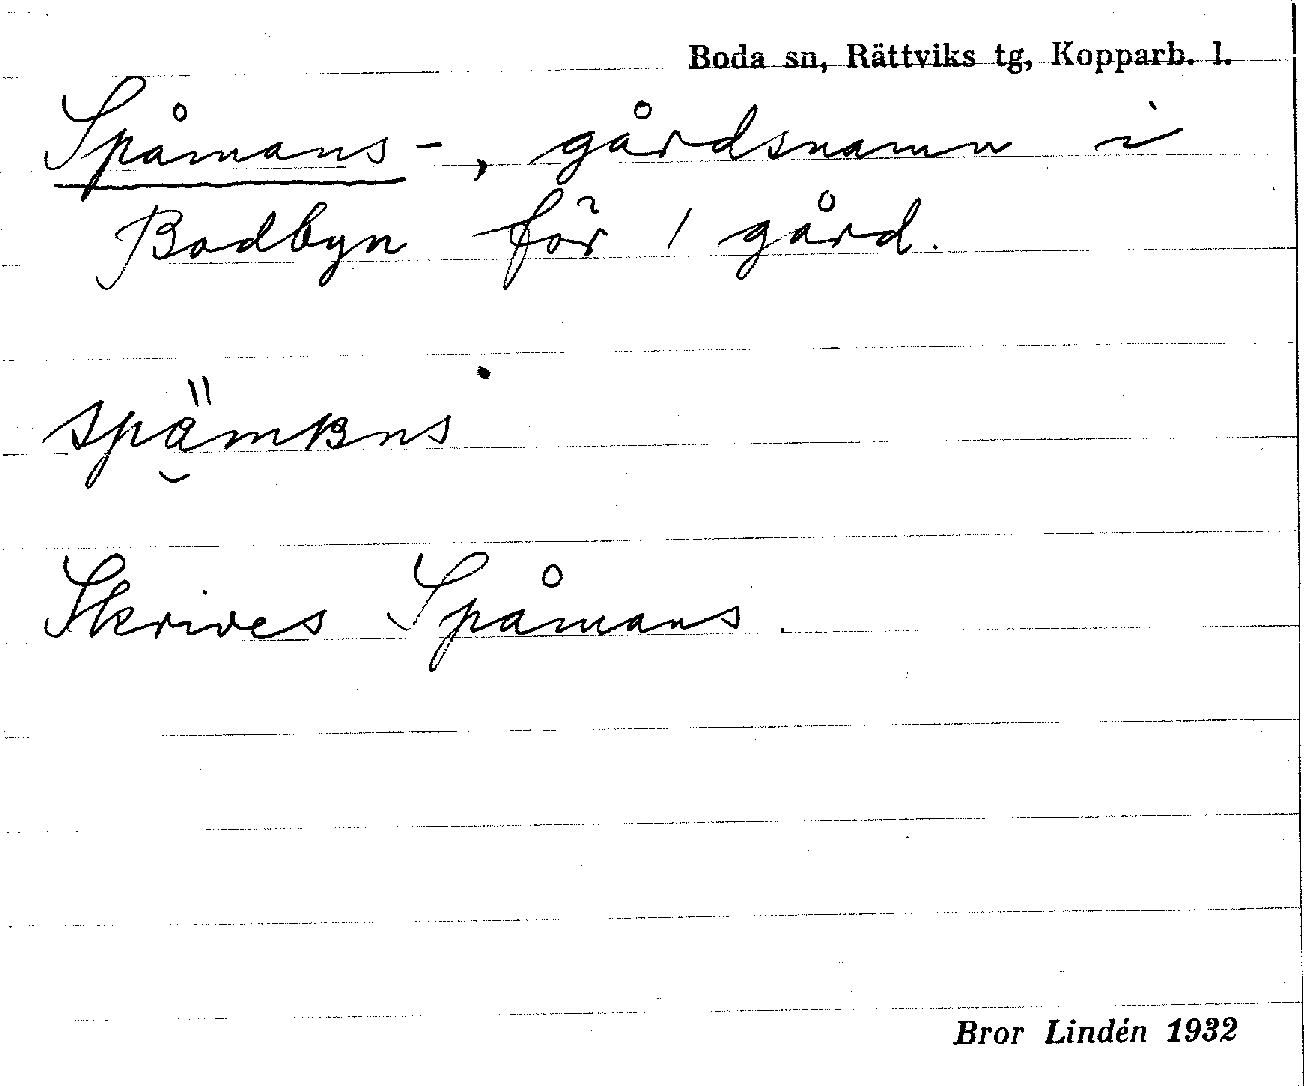 Boda sn, Rättviks tg, Kopparb. l.
Spåmans-, gårdsnamn i
Bodbyn för 1 gård.
Skrives Spåmans
Bror Lindén 1932